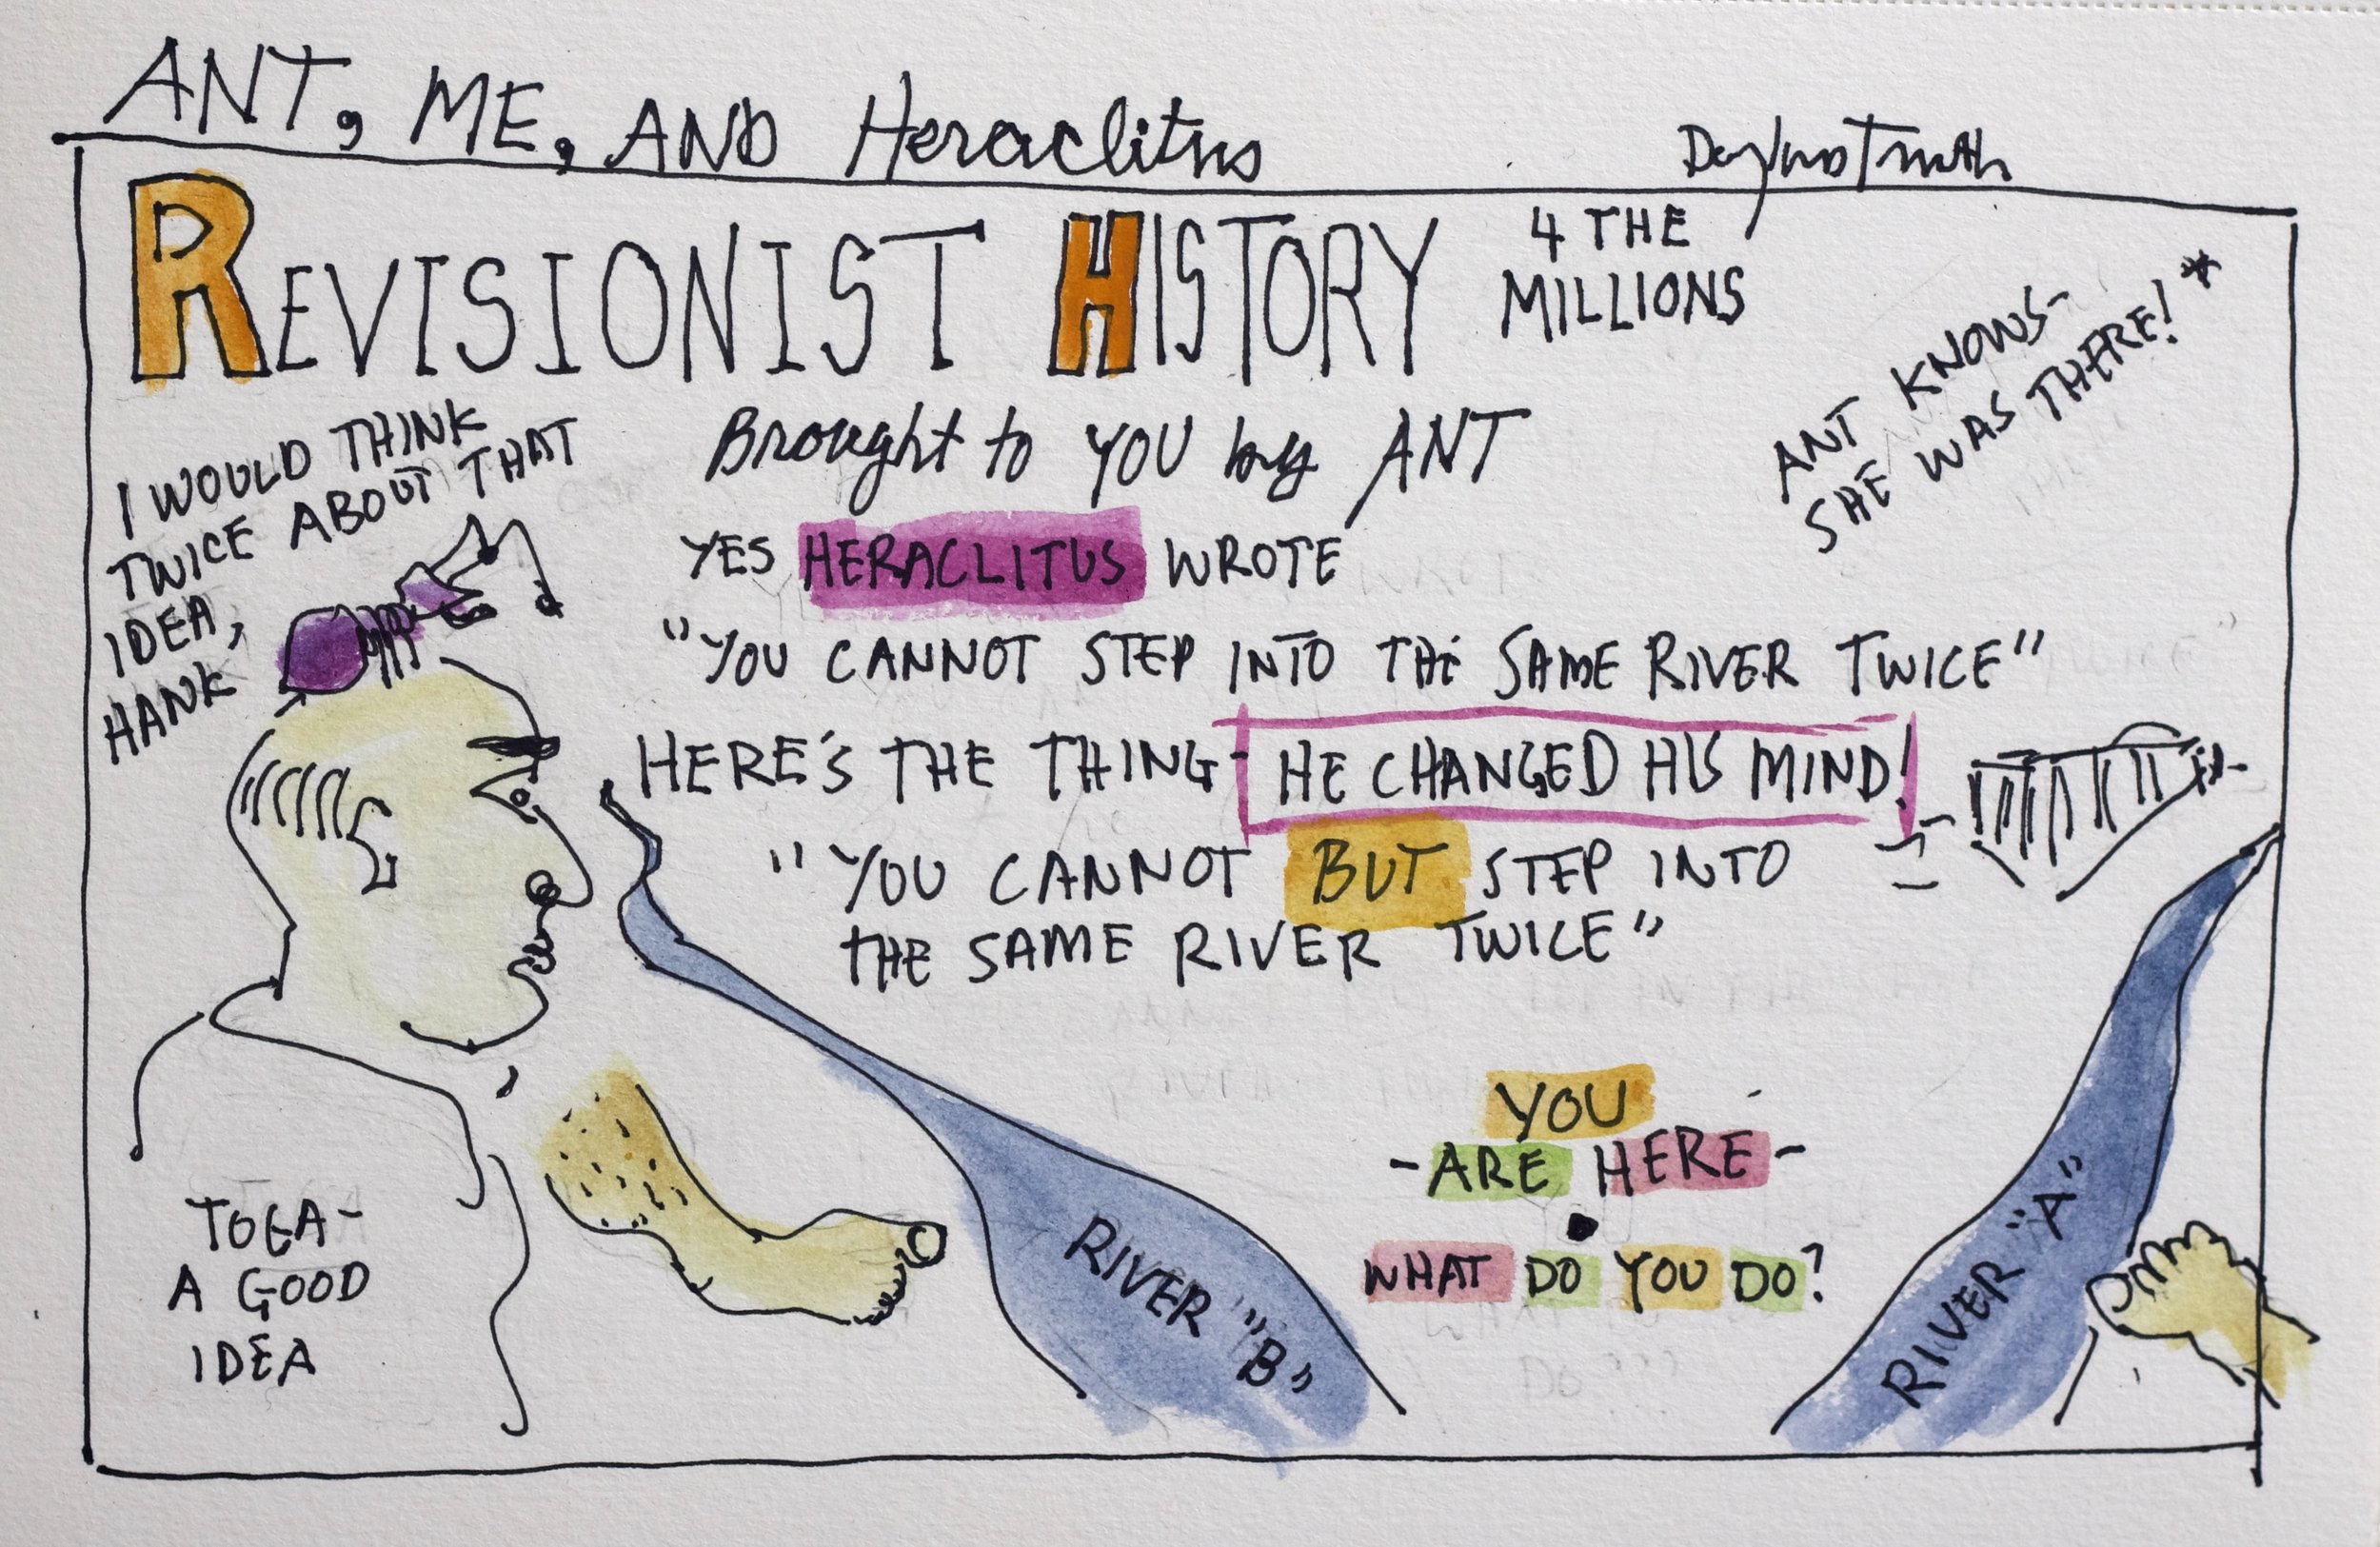 ANT, ME, AND Heraclitus
REVISIONIST HISTORY
4 THE
MILLIONS
ANT KNOWS-
SHE WAS THERE!*
Brought to YOU by ANT
I WOULD THINK
TWICE ABOUT THAT
IDEA,
HANK
YES HERACLITUS WROTE
"YOU CANNOT STEP INTO THE SAME RIVER TWICE"
HERE'S THE THING- HE CHANGED HIS MIND!
"YOU CANNOT BUT STEP INTO
THE SAME RIVER TWICE"
YOU
-ARE HERE-
WHAT DO YOU DO?
RIVER "B"
RIVER "A"
TOGA-
A GOOD
IDEA